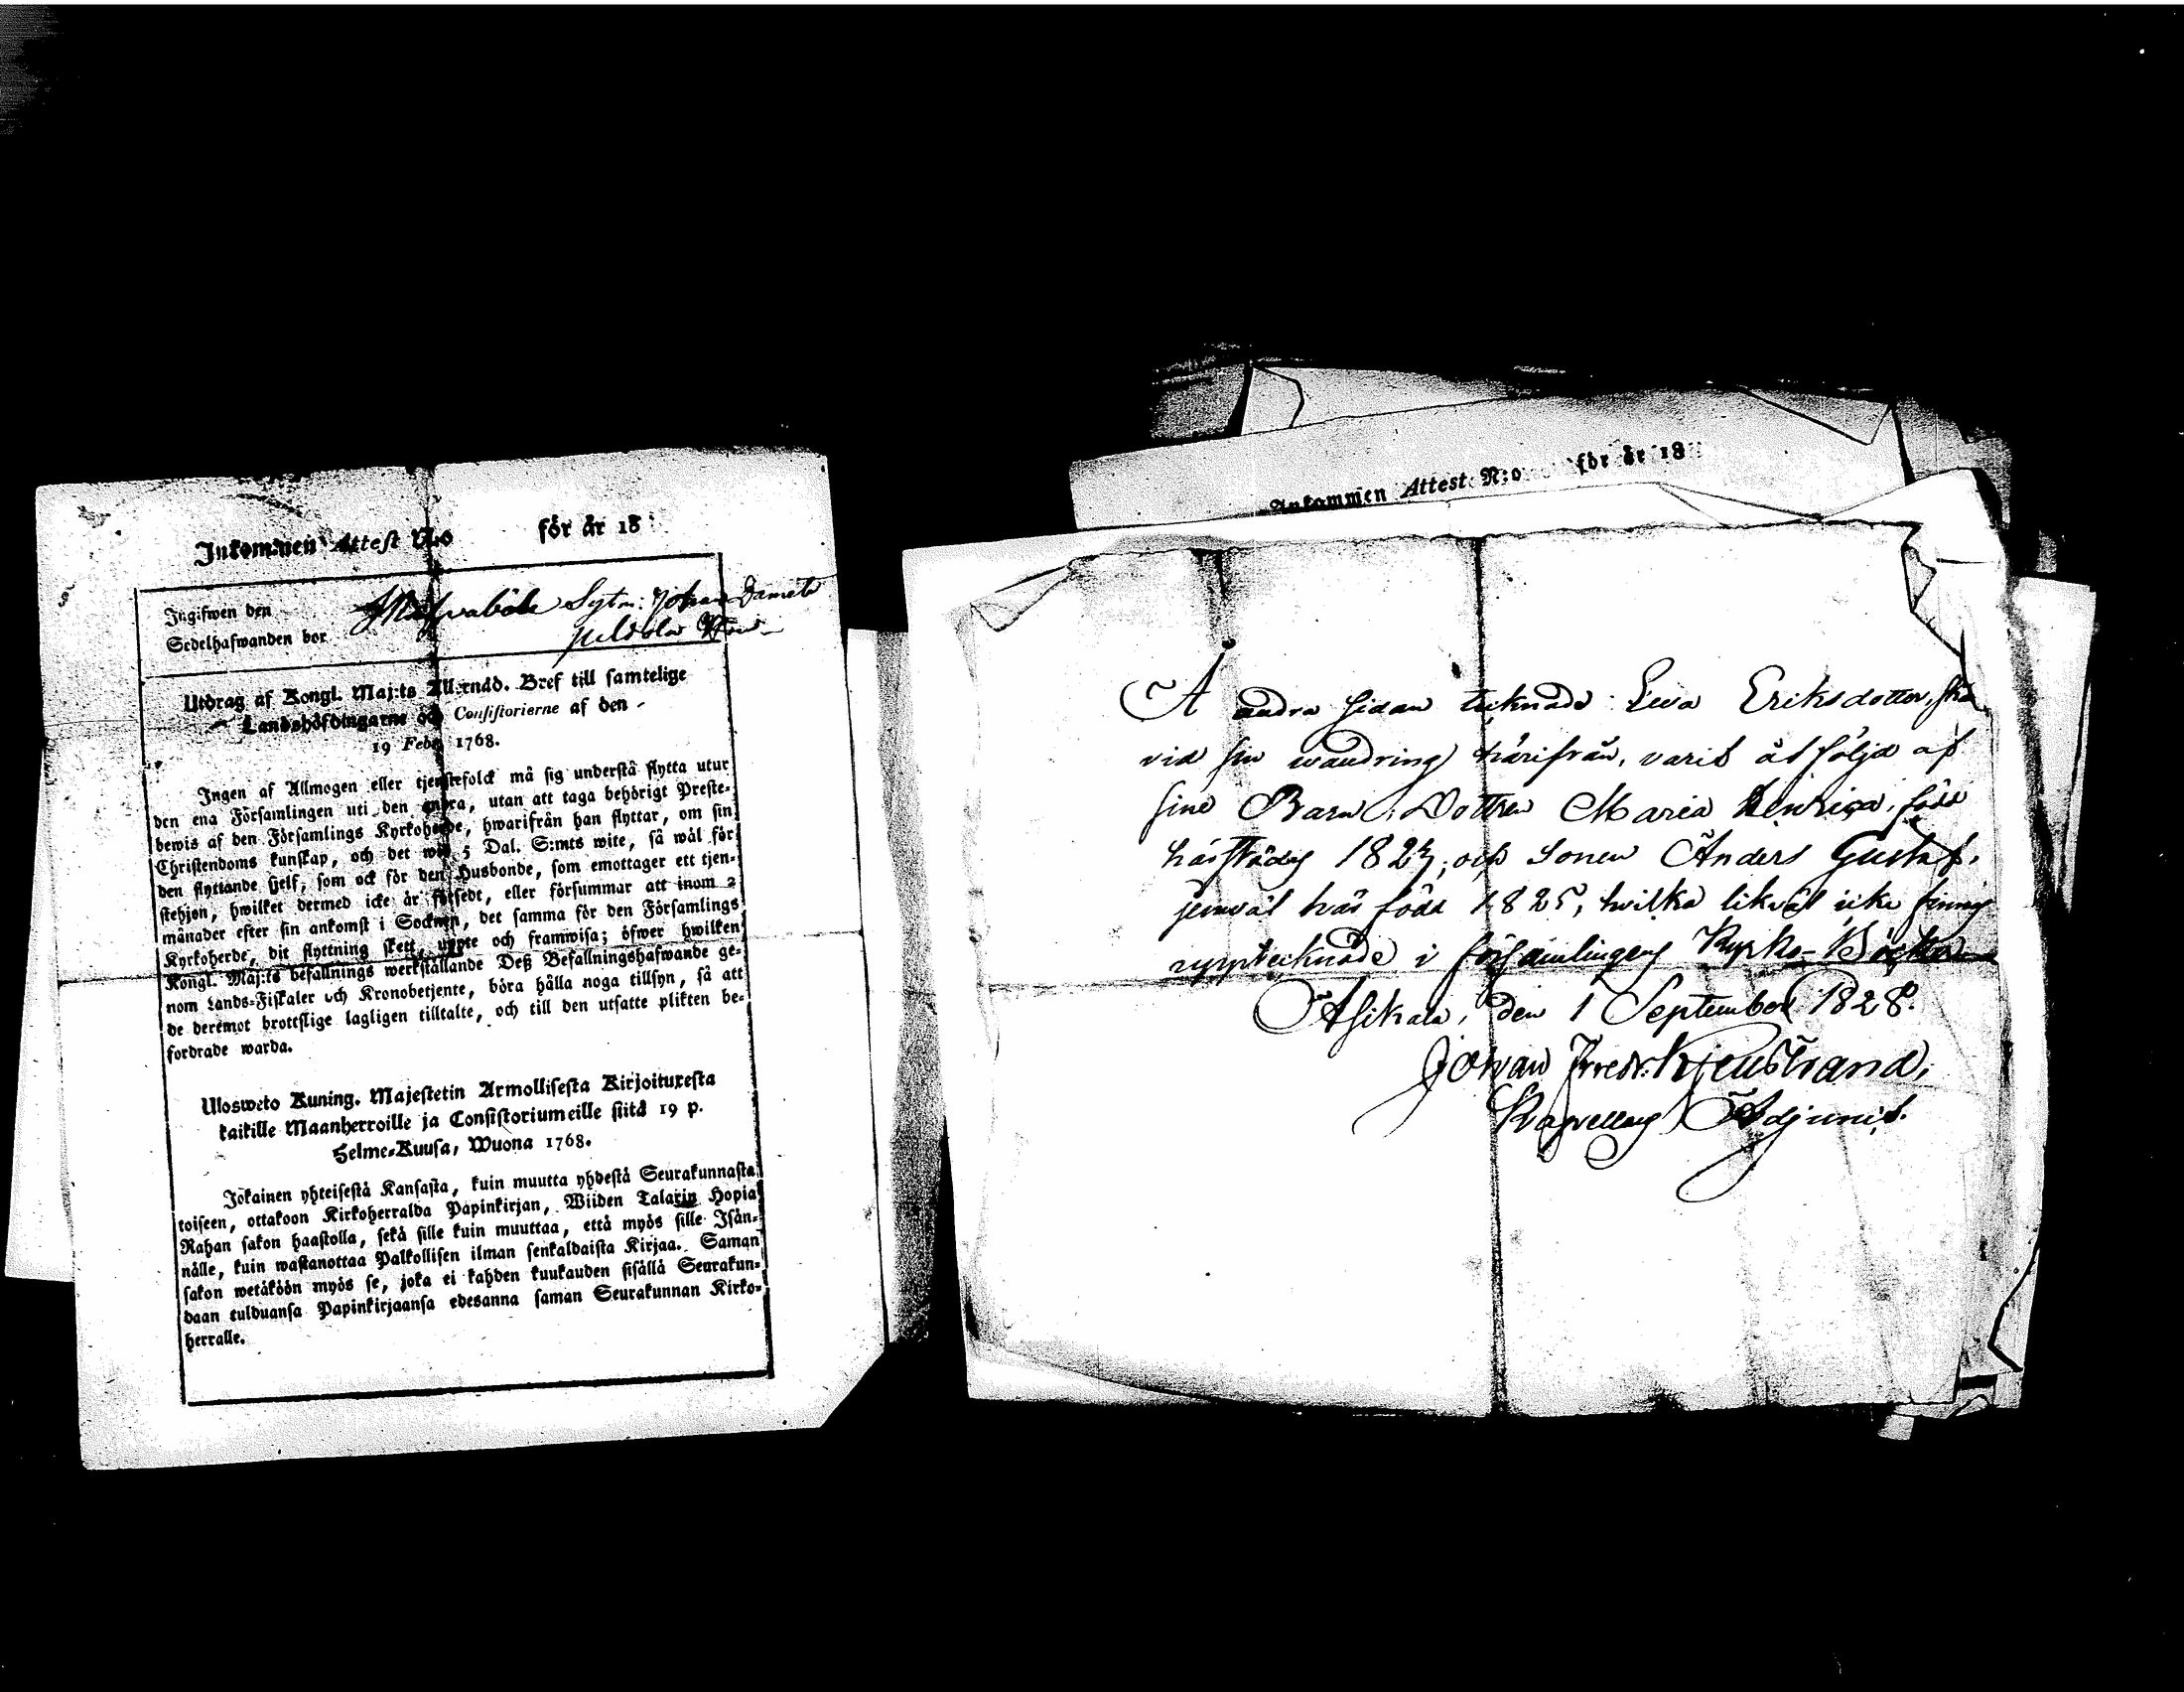 Inkommen Attest N:o för år 18
Ingifwen den
Sedelhafwanden bor
Utdrag af Kongl. Maj:ts Allernåd. Bref till samtelige
Landshöfdingarne och Consistorierne af den
19 Febr. 1768.
Ingen af Allmogen eller tjenstefolck må sig understå flytta utur
den ena Församlingen uti den andra, utan att taga behörigt Preste-
bewis af den Församlings Kyrkoherde, hwarifrån han flyttar, om sin
Christendoms kunskap, och det wid 5 Dal. S:mts wite, så wäl för
den flyttande sjelf, som ock för den Husbonde, som emottager ett tjen-
stehjon, hwilket dermed icke är försedt, eller försummar att inom 2
månader efter sin ankomst i Socknen, det samma för den Församlings
Kyrkoherde, dit flyttning skett, uppte och framwisa; öfwer hwilken
Kongl. Maj:ts befallnings werkställande Deß Befallningshafwande ge-
nom Lands-Fiskaler och Kronobetjente, böra hålla noga tillsyn, så att
de deremot brottslige lagligen tilltalte, och till den utsatte plikten be-
fordrade warda.
Ulosweto Kuning. Majestetin Armollisesta Kirjoituxesta
kaikille Maanherroille ja Consistoriumeille siitä 19 p.
Helme-Kuusa, Wuona 1768.
Jokainen yhteisestä Kansasta, kuin muutta yhdestä Seurakunnasta
toiseen, ottakoon Kirkoherralda Papinkirjan, Wiiden Talarin Hopia
Rahan sakon haastolla, sekä sille kuin muuttaa, että myös sille Isän-
nälle, kuin wastanottaa Palkollisen ilman senkaldaista Kirjaa. Saman
sakon wetäköön myös se, joka ei kahden kuukauden sisällä Seurakun-
daan tulduansa Papinkirjaansa edesanna saman Seurakunnan Kirko-
herralle.
Inkommen Attest N:o för år 18
Å andra sidan tecknade Leva Eriksdotter, ska
vid sin wandring härifrån, varit åtföljd af
sine Barn, Dottren Maria Henrica, född
härstädes 1823, och Sonen Anders Gustaf,
jemväl här född 1825, hvilka likväl icke finnes
upptecknade i församlingens Kyrko-Böcker
Asikala, den 1 September 1828.
Johan Fredr. Kjenstrand,
Kapellans Adjunct.